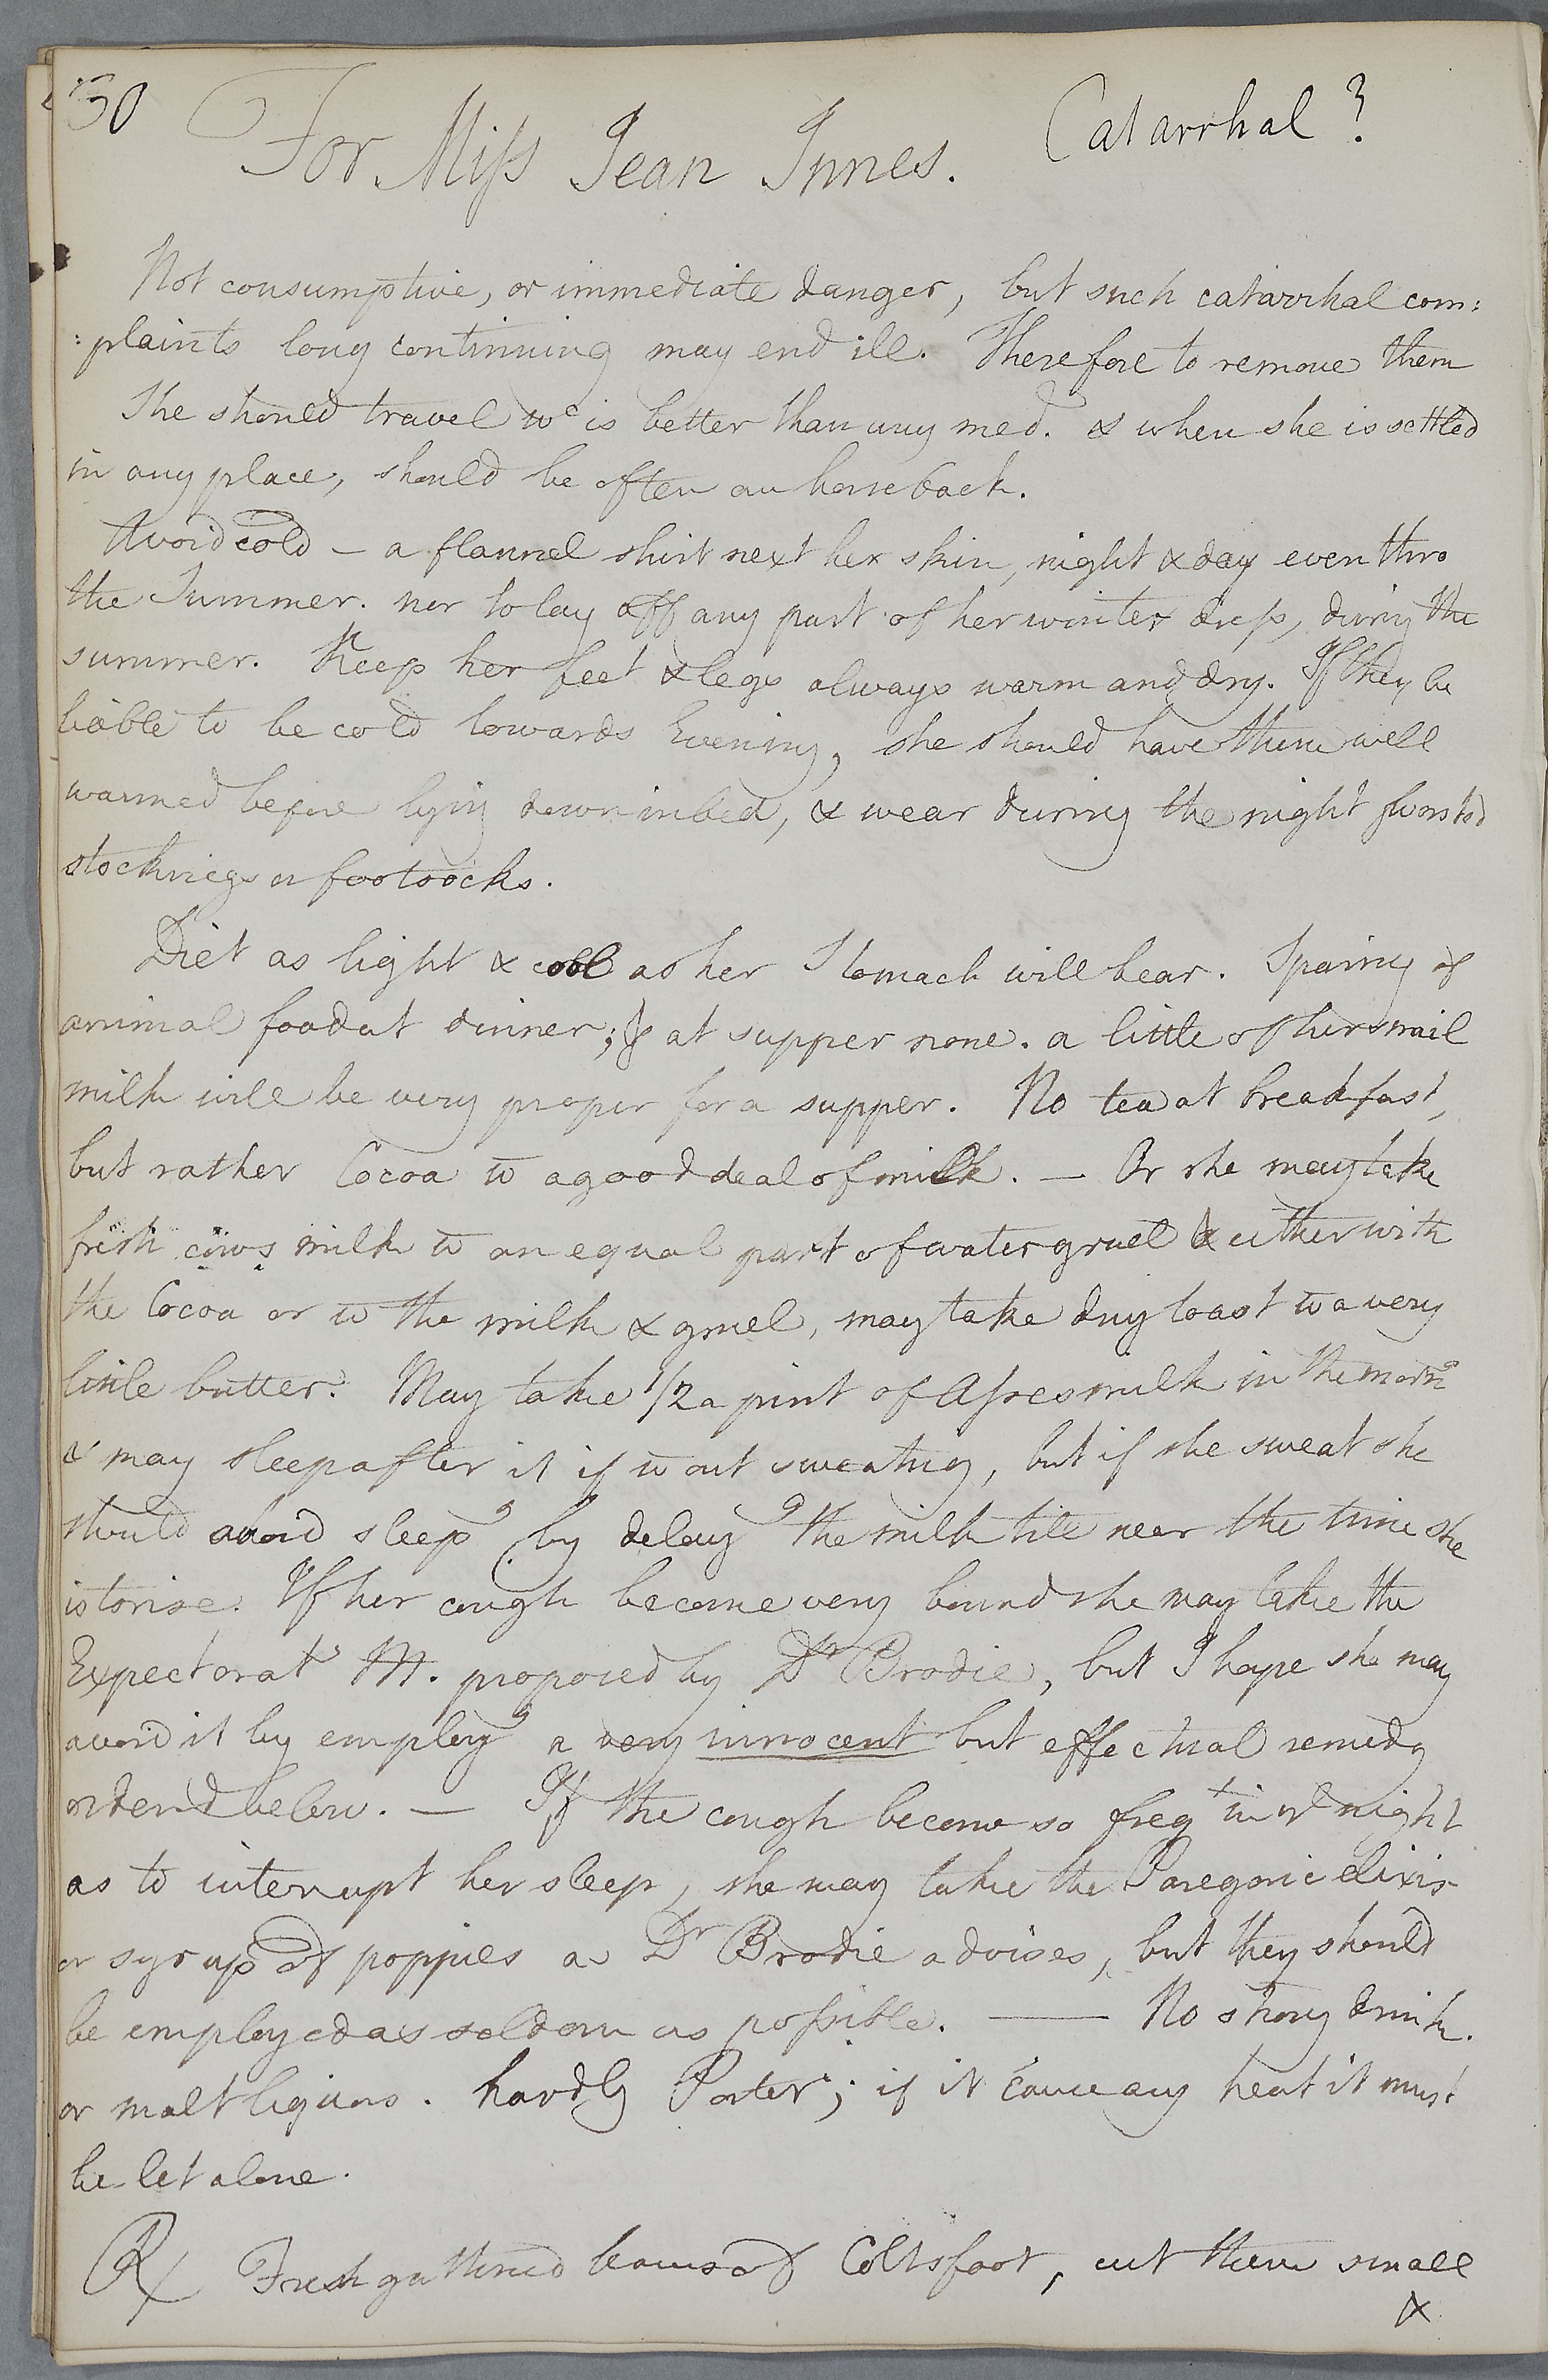 30
For Miss Jean Innes. Catarrhal?
Not consumptive, or immediate danger, but such catarrhal com:
:plaints long continuing may end ill. Therefore to remove them
She should travel wc is better than any med. & when she is settled
in any place, should be often on horseback.
Avoid cold – a flannel shirt next her skin, night & day even thro
the Summer. nor to lay off any part of her winter dress, during the
summer. Keep her feet & legs always warm and dry. If they be
liable to be cold towards Evening, she should have them well
warmed before lying down in bed, & wear during the night worsted
stockings or footsocks.
Diet as light & cool as her Stomach will bear. Sparing of
animal food at dinner; & at supper none. a little of her
milk will be very proper for a supper. No tea at breakfast,
but rather Cocoa w a good deal of milk. – Or she may take
fresh cows milk w an equal part of water gruel & either with
the Cocoa or w the milk & gruel, may take dry toast w a very
little butter. May take 1/2 a pint of Asses milk in the morng
& may sleep after it if w out sweating, but if she sweat she
should avoid sleepg by delayg the milk till near the time she
is to rise. If her cough become very bound she may take the
Expectorat M. proposed by Dr Brodie, but I hope she may
avoid it by employg a very innocent but effectual remedy
ordered below. – If the cough become so freqt in ye night
as to interrupt her sleep, she may take the Paregoric elixir
or syrup of poppies as Dr Brodie advises, but they should
be employed as seldom as possible. — No strong drink.
or malt liquors. hardly Porter; if it cause any heat it must
be let alone.
℞ Fresh gathered leaves of Coltsfoot, cut them small
&